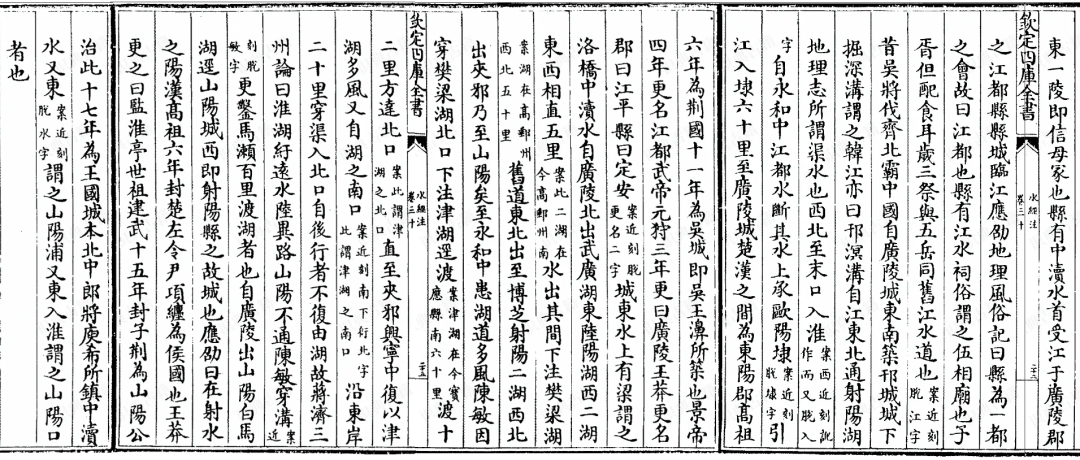 東一陵即信母冢也縣有中瀆水首受江于廣陵郡
欽定四庫全書 水經注 卷三十
之江都縣縣城臨江應劭地理風俗記曰縣為一都
之會故曰江都也縣有江水祠俗謂之伍相廟也子
胥但配食耳歳三祭與五岳同舊江水道也案近刻脱江字
昔吳將伐齊北霸中國自廣陵城東南築邗城城下
掘深溝謂之韓江亦曰邗溟溝自江東北通射陽湖
地理志所謂渠水也西北至末口入淮案西近刻訛作而又脱入
字自永和中江都水斷其水上承歐陽埭案近刻脱埭字引
江入埭六十里至廣陵城楚漢之間為東陽郡髙祖
六年為荆國十一年為吳城即吳王濞所築也景帝
四年更名江都武帝元狩三年更曰廣陵王莽更名
郡曰江平縣曰定安案近刻脱更名二字城東水上有梁謂之
洛橋中瀆水自廣陵北出武廣湖東陸陽湖西二湖
東西相直五里案此二湖在今高郵州南水出其間下注樊梁湖
案湖在高郵州西北五十里舊道東北出至博芝射陽二湖西北
出夾邪乃至山陽矣至永和中患湖道多風陳敏因
穿樊梁湖北口下注津湖逕渡案津湖在今寶應縣南六十里渡十
欽定四庫全書 水經注 卷三十
二里方達北口案此謂津湖之北口直至夾邪興寧中復以津
湖多風又自湖之南口案近刻南下衍北字此謂津湖之南口沿東岸
二十里穿渠入北口自後行者不復由湖故蔣濟三
州論曰淮湖紆遠水陸異路山陽不通陳敏穿溝案近
刻脱敏字更鑿馬瀬百里渡湖者也自廣陵出山陽白馬
湖逕山陽城西即射陽縣之故城也應劭曰在射水
之陽漢髙祖六年封楚左令尹項纏為侯國也王莽
更之曰監淮亭世祖建武十五年封子荆為山陽公
治此十七年為王國城本北中郎將庾希所鎮中瀆
水又東案近刻脱水字謂之山陽浦又東入淮謂之山陽口
者也